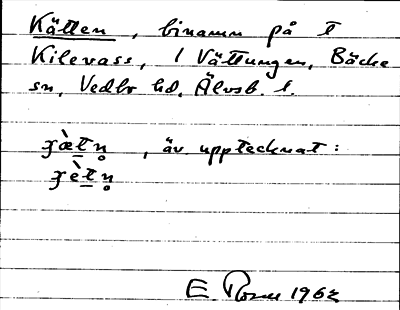 Kätten, binamn på t
Kilevass, 1 Vättungen, Bäcke
sn, Vedbo hd, Älvsb. l.
ʒæ̀tn̥, äv. upptecknat:
ʒètn̥
E. Rosell 1962